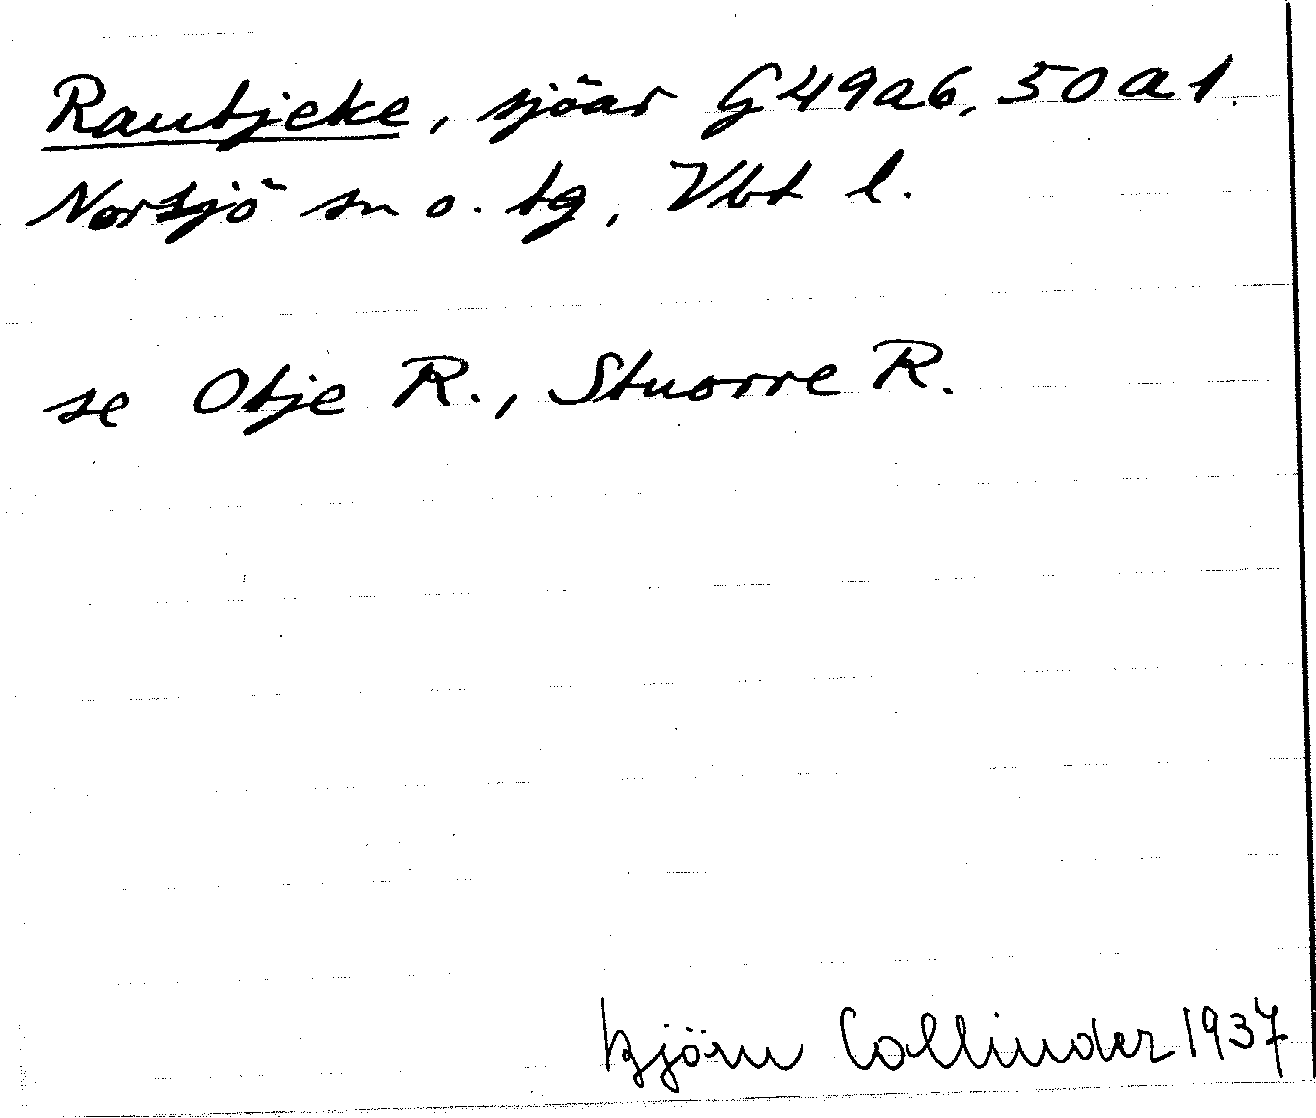 Rautjeke, sjöar G49a6, 50a1.
Norsjö sn o. tg, Vbt l.
se Otje R., Stuorre R.
Björn Collinder 1937